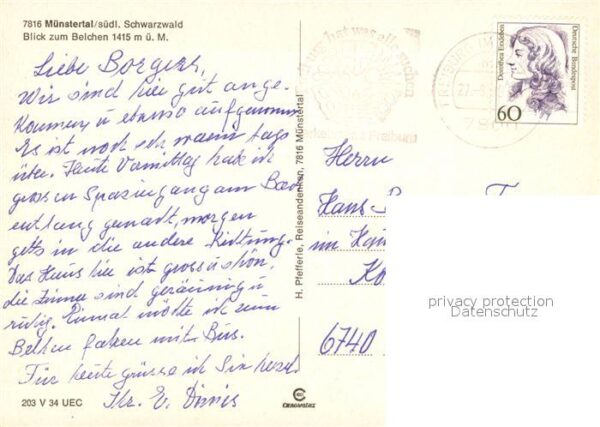 7816 Münstertal/südl. Schwarzwald
Blick zum Belchen 1415 m ü. M.
Liebe Borgers,
Wir sind hier gut ange-
kommen u ebenso aufgenommen
Es ist noch sehr warm tags
über. Heute Vormittag habe ich
grossen Spaziergang am Bach
entlang gemacht, morgen
gehts in die andere Richtung.
Das Haus hier ist gross u schön,
die Zimmer sind geräumig u
ruhig. Einmal möchte ich zum
Belchen fahren mit Bus.
Für heute grüsse ich Sie herzl.
Ihr. E.
203 V 34 UEC
H. Pfefferle, Reiseandenken, 7816 Münstertal
CEKADEWERTZ
Freiburg
27
Dorothea Erxleben
Deutsche Bundespost
60
Herrn
Hans
im
6740
privacy protection
Datenschutz